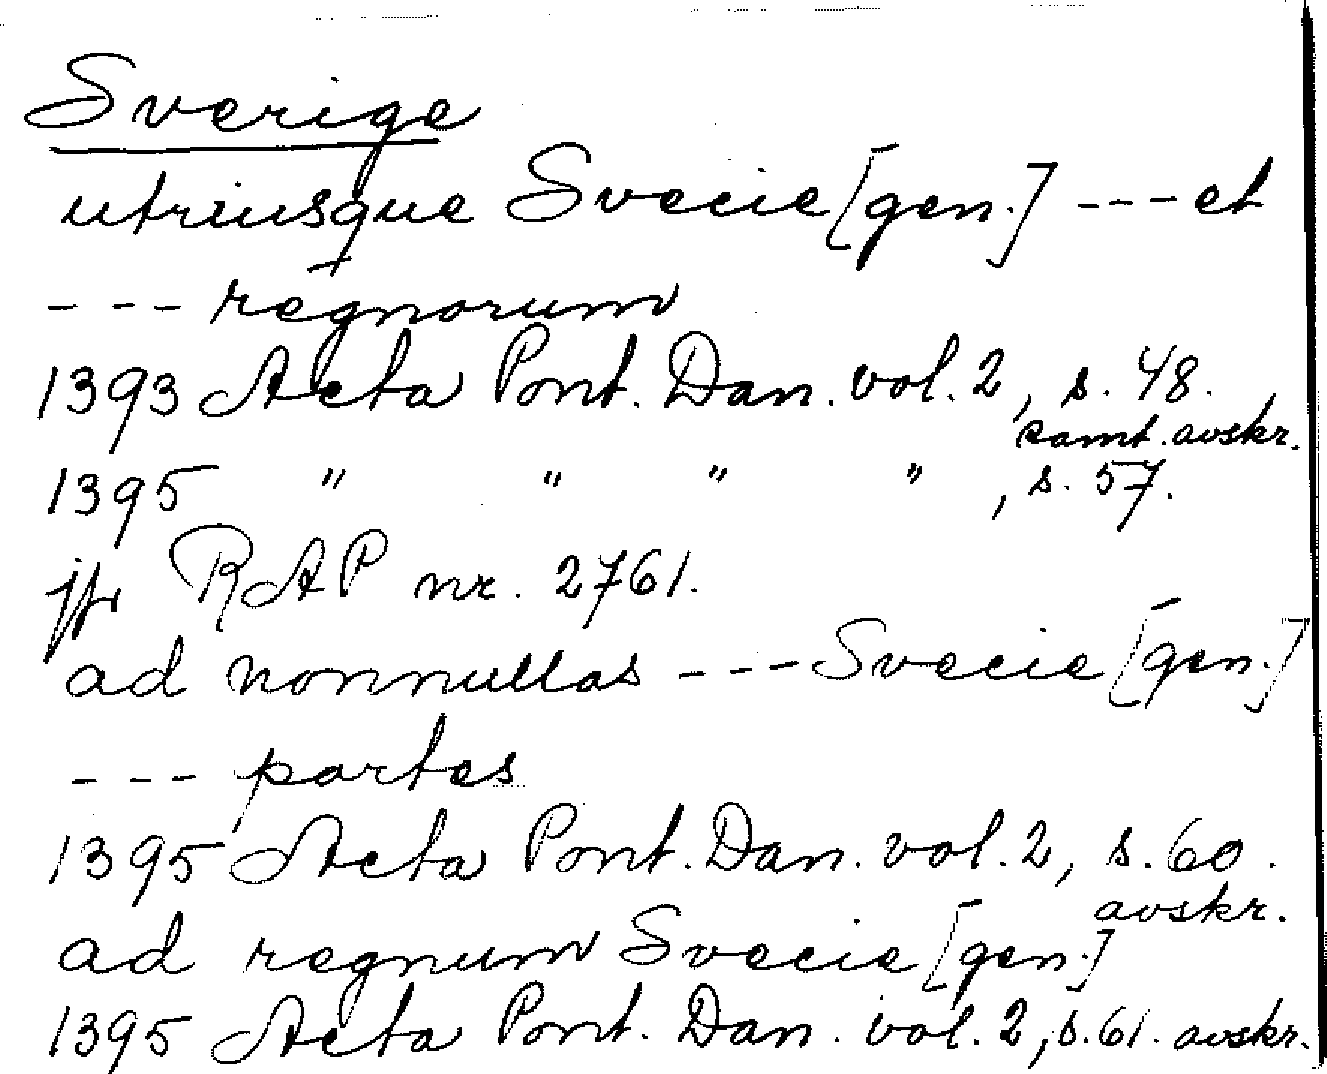 Sverige
utriusque Svecie [gen.] --- et
--- regnorum
1393 Acta Pont. Dan. vol. 2, s. 48.
samt. avskr.
1395 " " " " , s. 57.
jfr RAP nr. 2761.
ad nonnullas --- Svecie [gen.]
--- partes
1395 Acta Pont. Dan. vol. 2, s. 60.
avskr.
ad regnum Svecie [gen.]
1395 Acta Pont. Dan. vol. 2, s. 61. avskr.